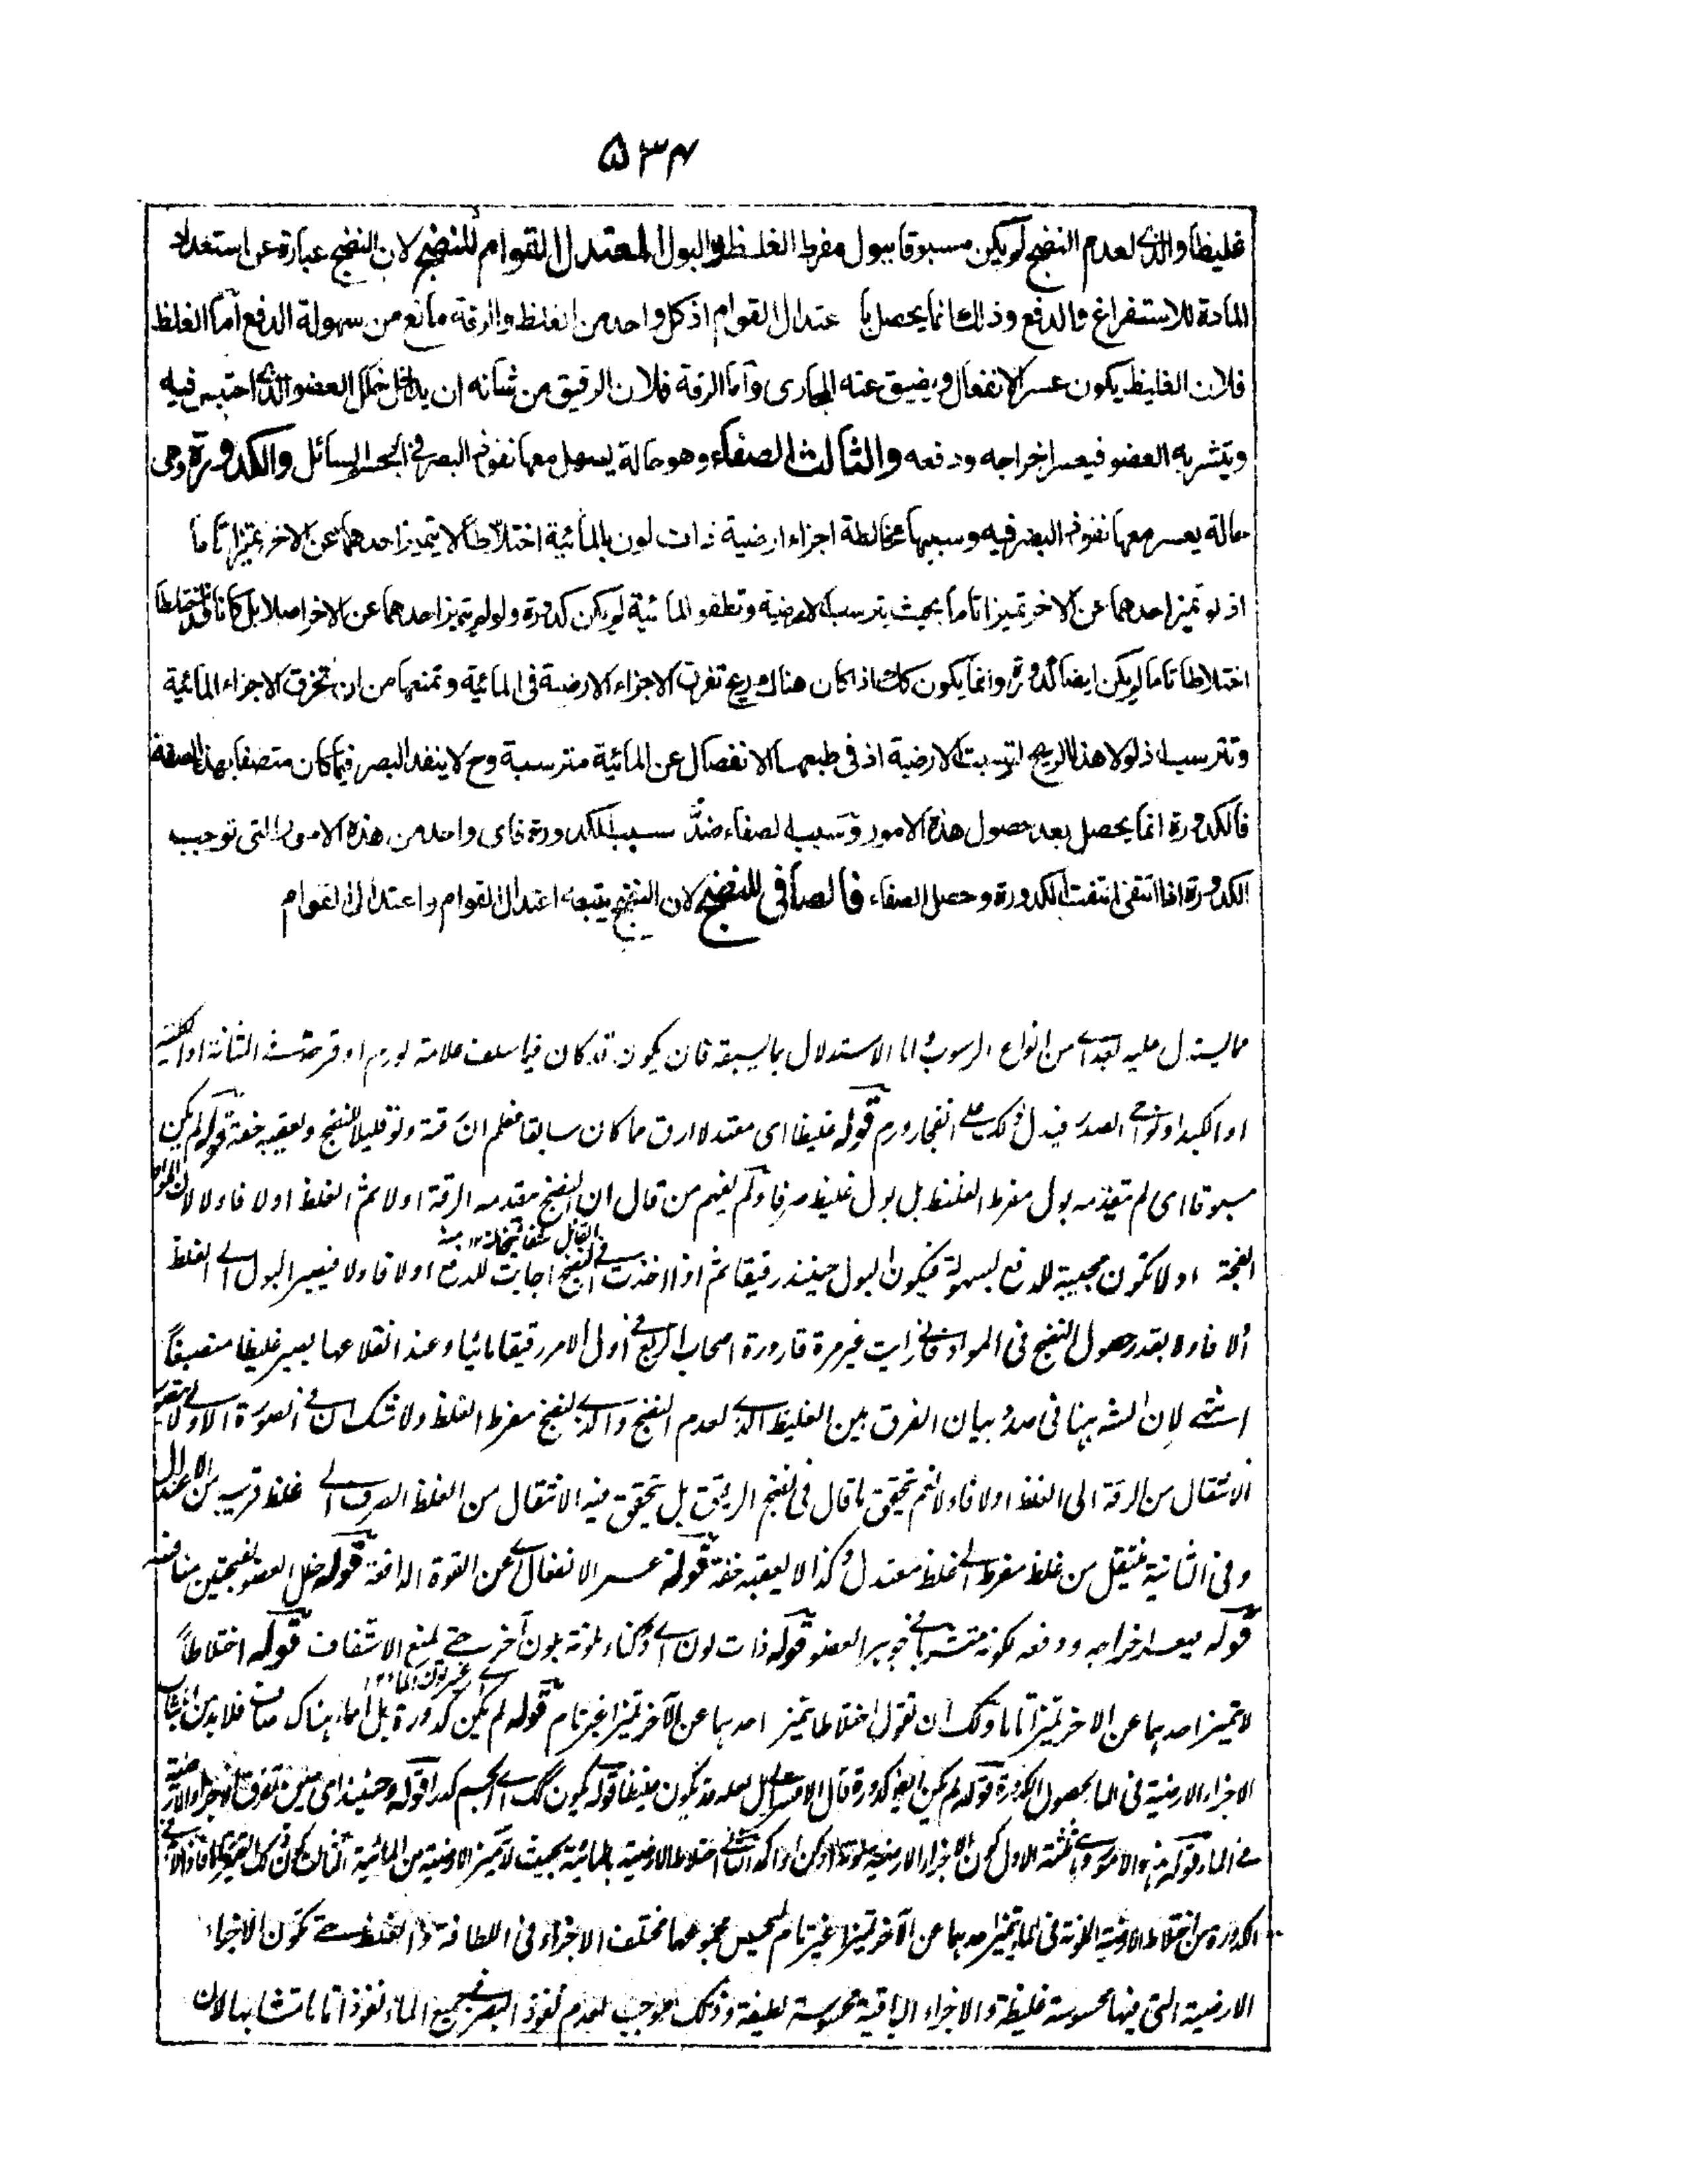 ۵۳۴
غليظا والذى لعدم النضج لم يكن مسبوقا ببول مفرط الغلظ والبول المعتدل القوام للنضج لان النضج عبارة عن استعداد
المادة للاستفراغ والدفع وذلك انما يحصل با عتدال القوام اذ كل واحد من الغلظ والرقة مانع من سهولة الدفع اما الغلظ
فلان الغليظ يكون عسر الانفعال ويضيق عنه المجارى واما الرقة فلان الرقيق من شانه ان يداخل خلل العضو الذى احتبس فيه
ويتشربه العضو فيعسر اخراجه ودفعه والثالث الصفاء وهو حالة يسهل معها نفوذ البصر فى الجسم السائل والكدورة وهى
حالة يعسر معها نفوذ البصر فيه وسببها مخالطة اجزاء ارضية ذات لون بالمائية اختلاطا لا يتميز احدهما عن الاخر تميزا تاما
اذ لو تميز احدهما عن الاخر تميزا تاما بحيث يترسب الارضية وتطفو المائية لم يكن كدورة ولو لم يتميز احدهما عن الاخر اصلا بل كانا قد اختلطا
اختلاطا تاما لم يكن ايضا كدورة وانما يكون كك اذا كان هناك ريح تفرق الاجزاء الارضية فى المائية وتمنعها من ان تخرق الاجزاء المائية
وتترسب اذ لولا هذا الريح لترسبت الارضية اذ فى طبعها الانفصال عن المائية مترسبة وح لا ينفذ البصر فيما كان متصفا بهذه الصفة
فالكدورة انما يحصل بعد حصول هذه الامور وسبب الصفاء ضد سبب الكدورة فاى واحد من هذه الامور التى توجب
الكدورة اذا انتفى انتفت الكدورة وحصل الصفاء فالصافى للنضج لان النضج يتبعه اعتدال القوام واعتدال القوام
مما يستدل عليه بعد اى من انواع الرسوب اما الاستدلال بما يسبقه فان يكون قد كان فيما سلف علامة لورم او قرحة فى المثانة او الكلية
او الكبد او نواحى الصدر فيدل ذلك على انفجار ورم قوله غليظا اى معتدلا ارق مما كان سابقا فعلم ان رقته ولو قليلا للنضج ويعقبه خفة قوله لم يكن
مسبوقا اى لم يتقدمه بول مفرط الغلظ بل بول غليظ صرفا ولم يفهم من قال ان النضج يقدمه الرقة اولا ثم الغلظ اولا فاولا لان المواد
الفجة اولا تكون مجيبة للدفع بسهولة فيكون البول حينئذ رقيقا ثم اذا اخذت فى النضج اجابت للدفع اولا فاولا فيصير البول الى الغلظ
اولا فاولا بقدر حصول النضج فى المواد فانى رايت غير مرة قارورة اصحاب الربع فى اول الامر رقيقا مائيا وعند انقلاعها يصير غليظا منصبغا
انتهى لان الشه ههنا فى صدد بيان الفرق بين الغليظ الذى لعدم النضج والذى لنضج مفرط الغلظ ولا شك ان فى الصورة الاولى لا يتصور
الانتقال من الرقة الى الغلظ اولا فاولا نعم يتحقق ما قال فى نضج الرقيق بل يتحقق فيه الانتقال من الغلظ الصرف الى غلظ قريب من الاعتدال
وفى الثانية ينتقل من غلظ مفرط الى غلظ معتدل وكذا لا يعقبه خفة قوله عسر الانفعال اى عن القوة الدافعة قوله خلل العضو بفتحتين منافذه
قوله فيعسر اخراجه ودفعه لكونه متشربا فى جوهر العضو قوله ذات لون اى دكناء ملونة بلون آخر حتى يمنع الاشفاف قوله اختلاطا
لا يتميز احدهما عن الاخر تميزا تاما ولك ان تقول اختلاطا يتميز احدهما عن الآخر تميزا غير تام قوله لم يكن كدورة بل الماء هناك صاف فلا بد من
الاجزاء الارضية فى الماء لحصول الكدورة قوله لم يكن ايضا كدورة قال قوله يكون كك اى الجسم كدرا قوله وحينئذ اى حين تفرق الاجزاء الارضية
فى الماء قوله هذه الامور الاول كون الاجزاء الارضية اختلاط الارضية بالمائية بحيث لا يتميز الارضية من المائية
الكدورة من اختلاط الارضية الملونة فى الماء يتميز احدهما عن الآخر تميزا غير تام ليحس مجموعها مختلف الاجزاء فى اللطافة والغلظ حتى تكون الاجزاء
الارضية التى فيها محسوسة غليظة والاجزاء الباقية محسوسة لطيفة وذلك موجب لعدم نفوذ البصر فى جميع الماء نفوذا تاما متشابها لان